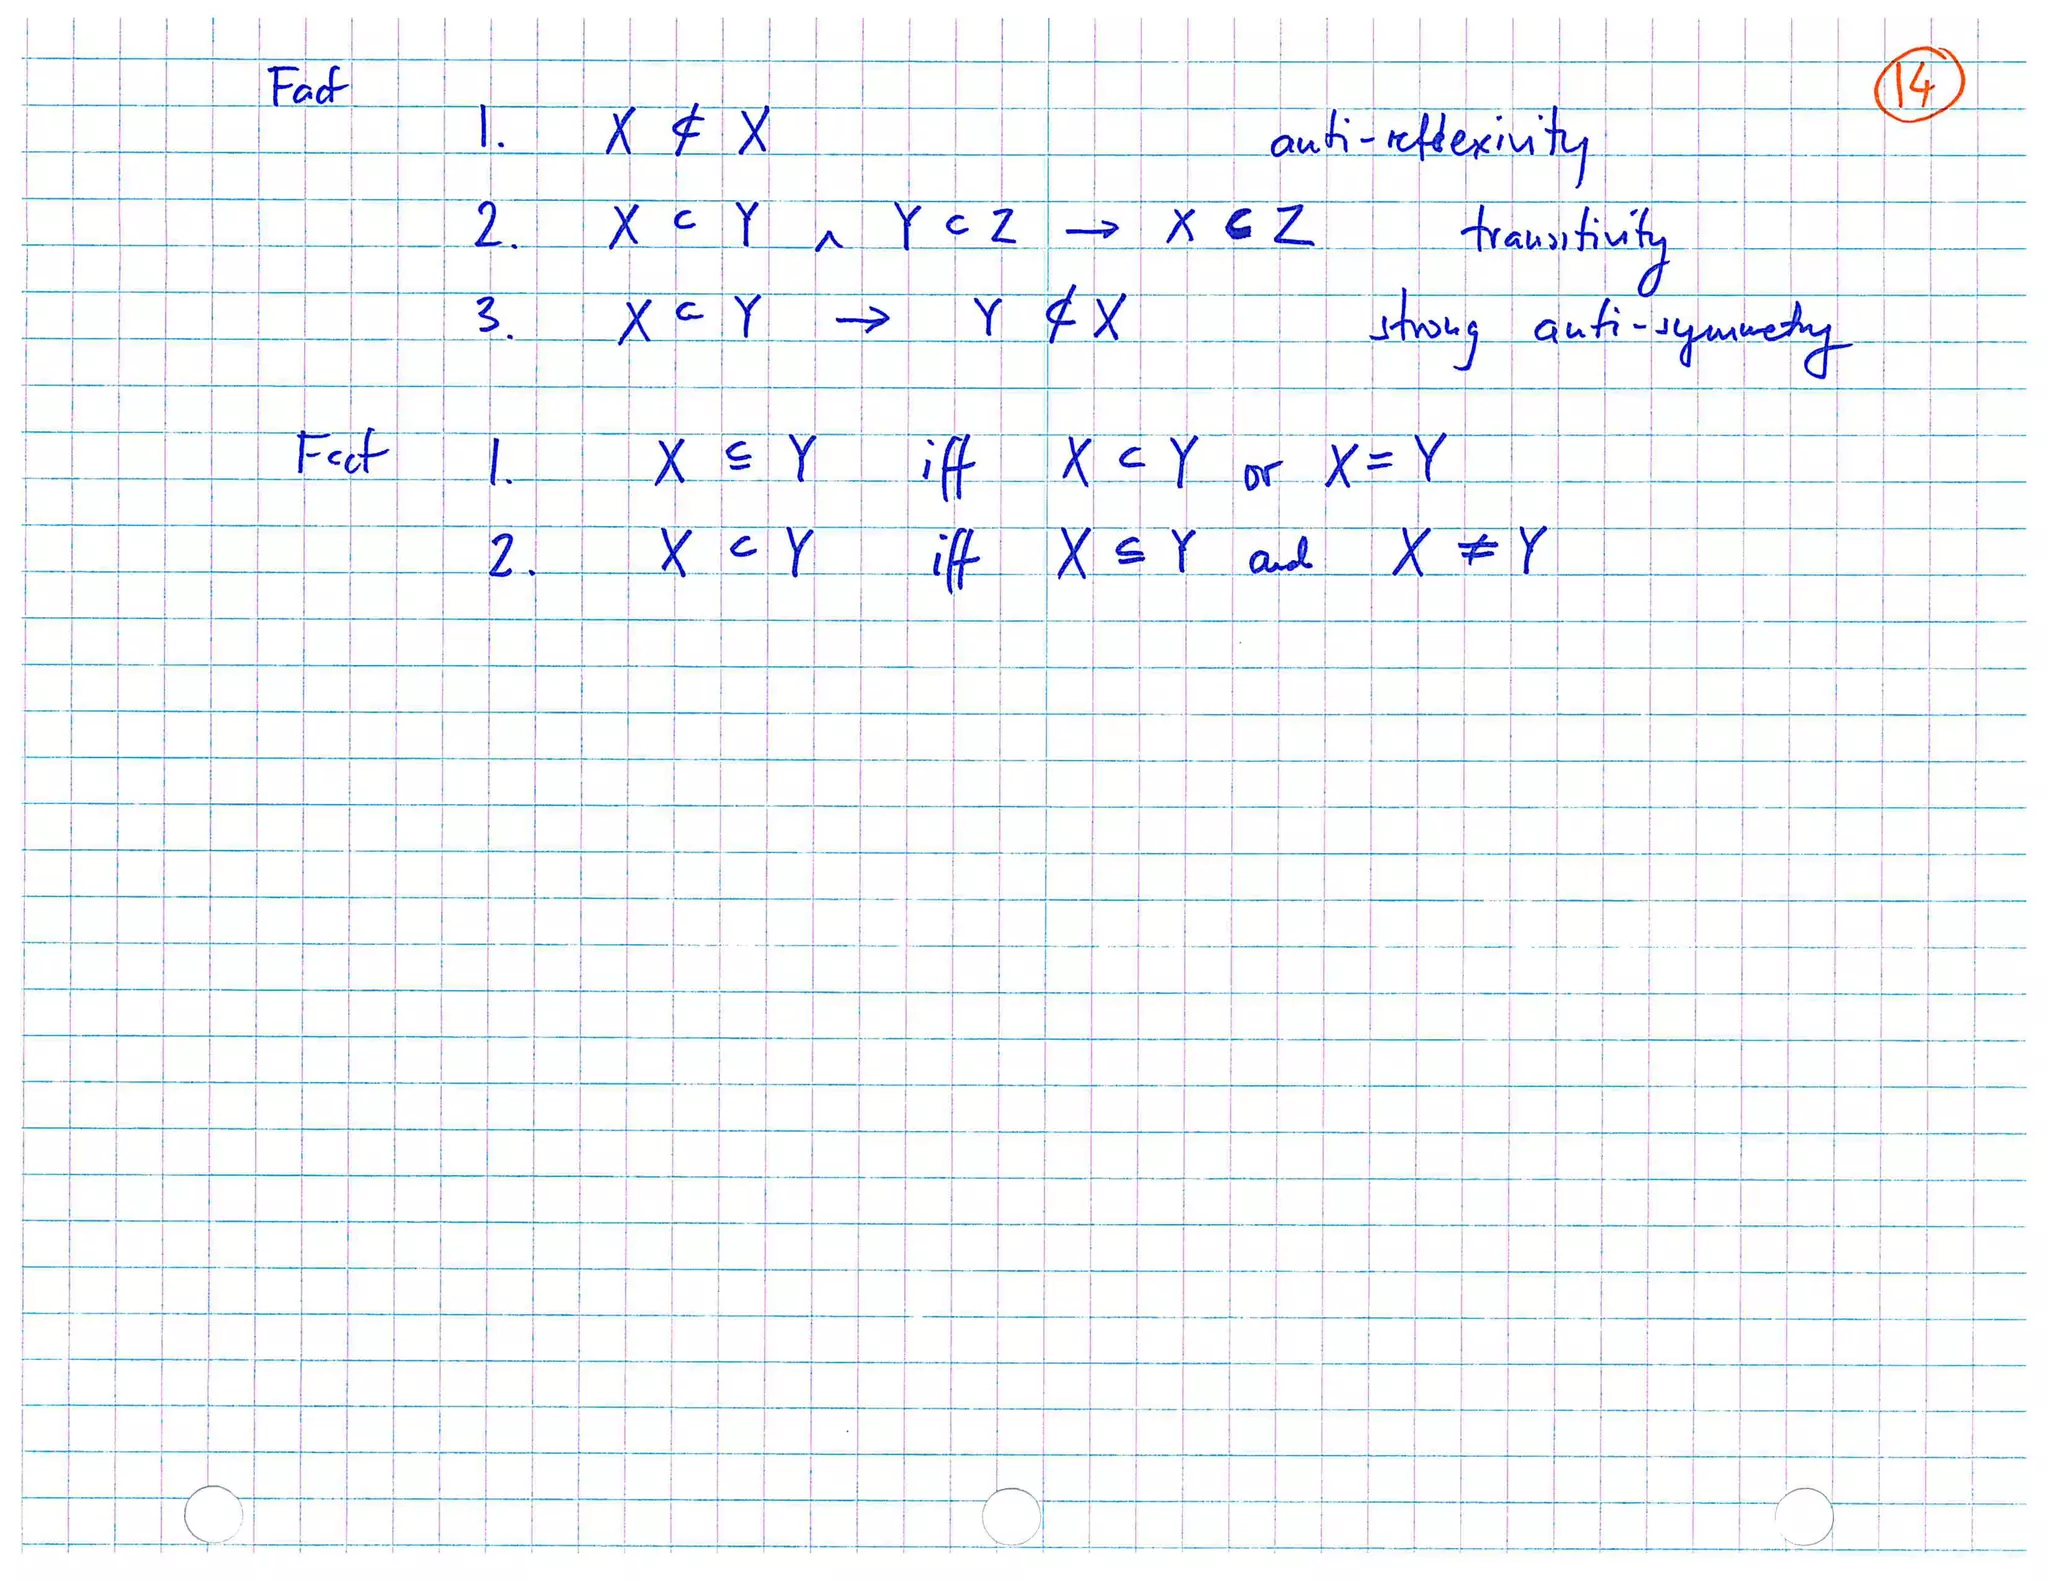 14
Fact
1. X ⊄ X anti-reflexivity
2. X ⊂ Y ∧ Y ⊂ Z → X ⊂ Z transitivity
3. X ⊂ Y → Y ⊄ X strong anti-symmetry
Fact 1. X ⊆ Y iff X ⊂ Y or X = Y
2. X ⊂ Y iff X ⊆ Y and X ≠ Y